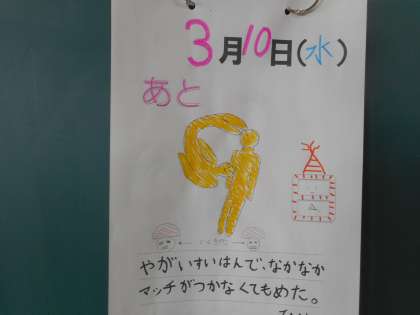 3月10日(水)
あと
9
やがいすいはんで、なかなか
マッチがつかなくてもめた。